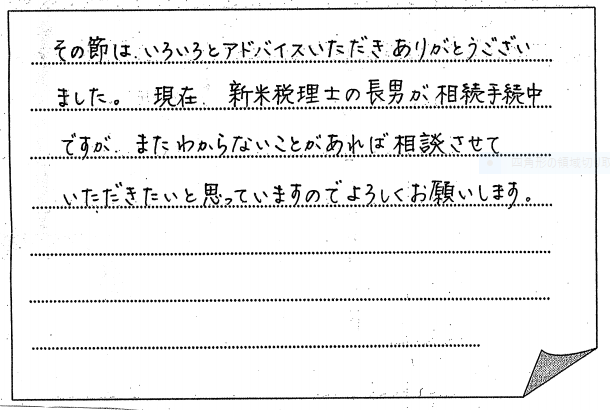 その節は、いろいろとアドバイスいただきありがとうござい
ました。 現在、新米税理士の長男が相続手続中
ですが、またわからないことがあれば相談させて
いただきたいと思っていますのでよろしくお願いします。